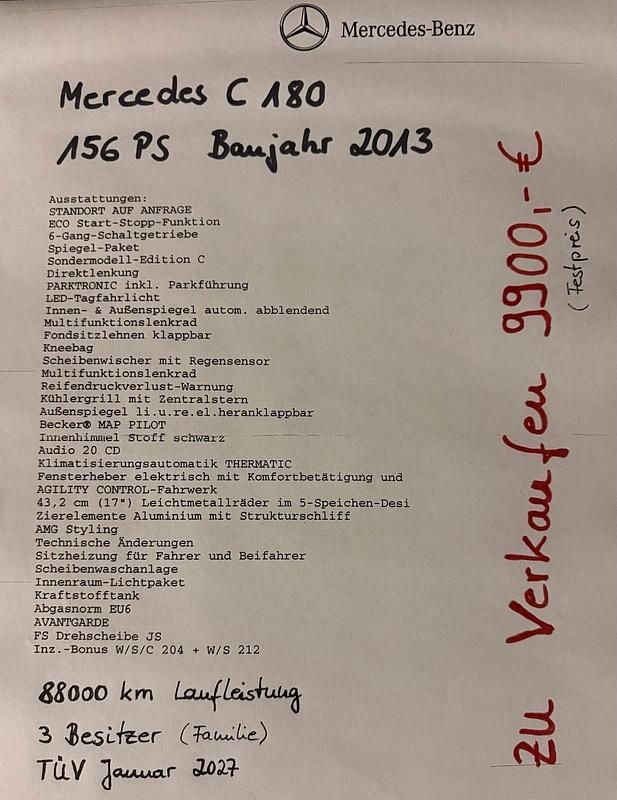 Mercedes-Benz
Mercedes C 180
156 PS Baujahr 2013
Ausstattungen:
STANDORT AUF ANFRAGE
ECO Start-Stopp-Funktion
6-Gang-Schaltgetriebe
Spiegel-Paket
Sondermodell-Edition C
Direktlenkung
PARKTRONIC inkl. Parkführung
LED-Tagfahrlicht
Innen- & Außenspiegel autom. abblendend
Multifunktionslenkrad
Fondsitzlehnen klappbar
Kneebag
Scheibenwischer mit Regensensor
Multifunktionslenkrad
Reifendruckverlust-Warnung
Kühlergrill mit Zentralstern
Außenspiegel li.u.re.el.heranklappbar
Becker® MAP PILOT
Innenhimmel Stoff schwarz
Audio 20 CD
Klimatisierungsautomatik THERMATIC
Fensterheber elektrisch mit Komfortbetätigung und
AGILITY CONTROL-Fahrwerk
43,2 cm (17") Leichtmetallräder im 5-Speichen-Desi
Zierelemente Aluminium mit Strukturschliff
AMG Styling
Technische Änderungen
Sitzheizung für Fahrer und Beifahrer
Scheibenwaschanlage
Innenraum-Lichtpaket
Kraftstofftank
Abgasnorm EU6
AVANTGARDE
FS Drehscheibe JS
Inz.-Bonus W/S/C 204 + W/S 212
88000 km Laufleistung
3 Besitzer (Familie)
TÜV Januar 2027
zu Verkaufen 9900,- €
(Festpreis)